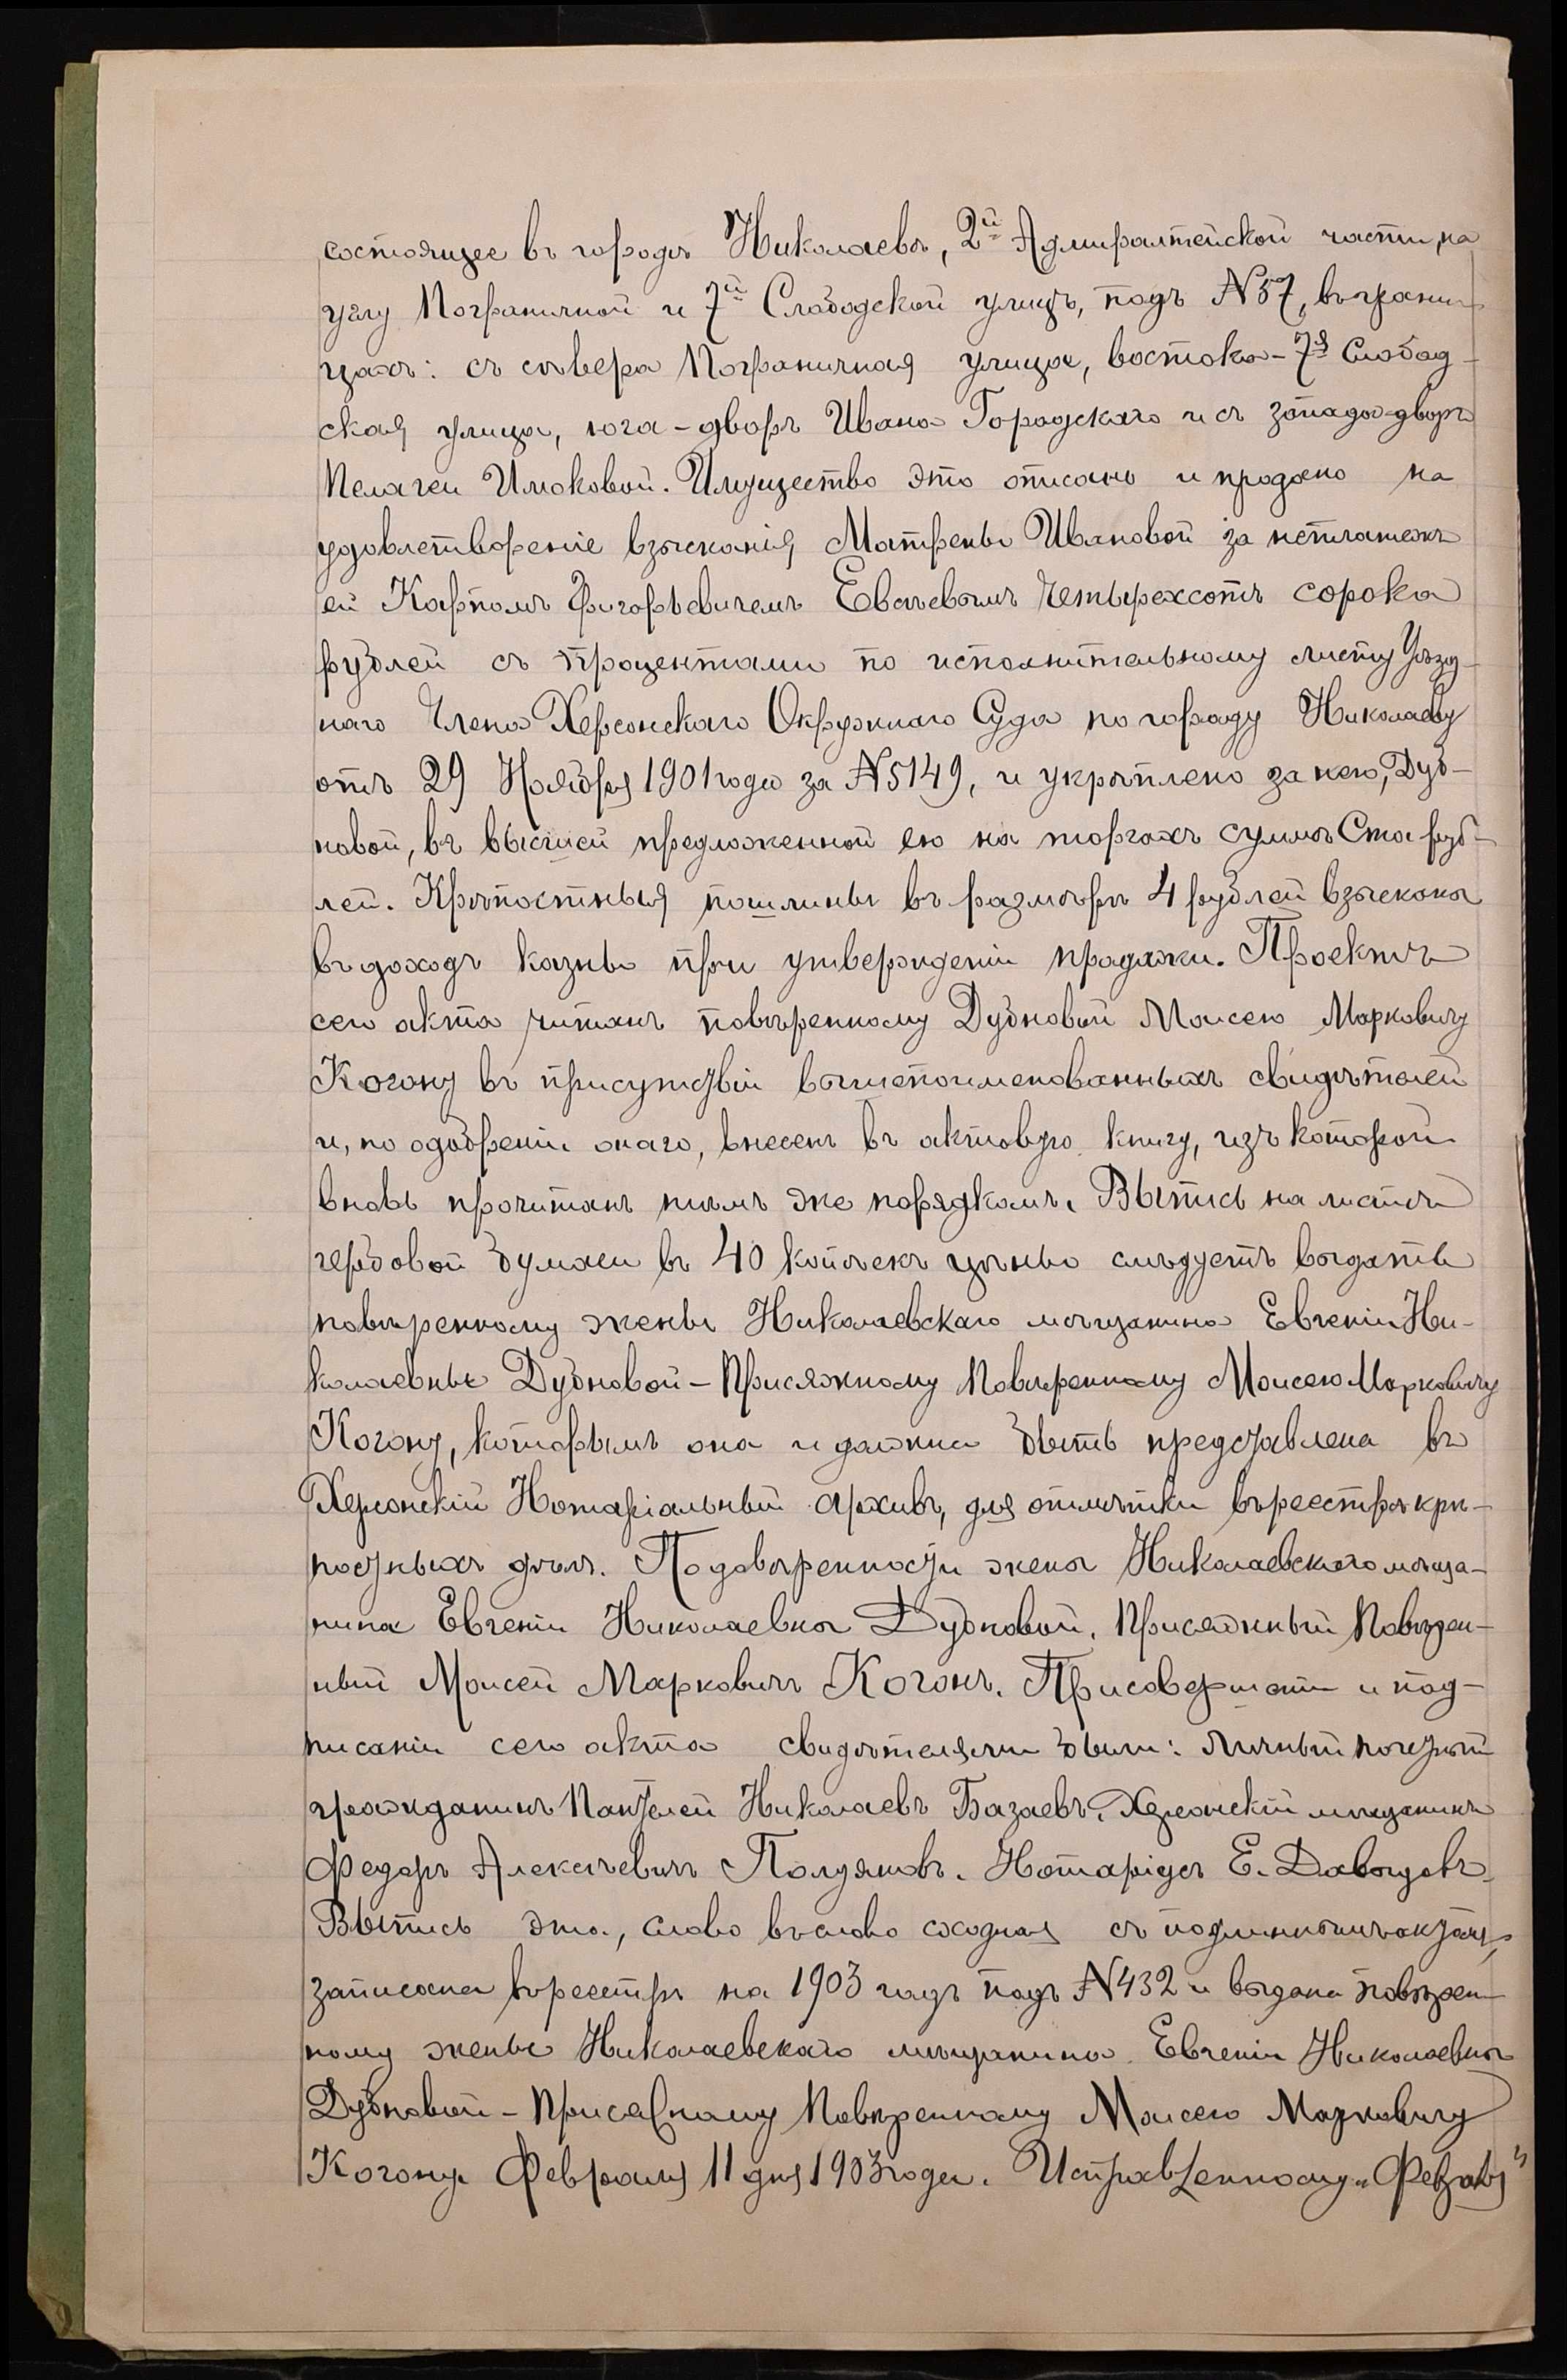 состоящее въ городѣ Николаевѣ, 2й Адмиралтейской части, на
углу Пограничной и 7й Слободской улицъ, подъ №57, въ грани-
цахъ: съ сѣвера Пограничная улица, востока - 7я Слобод-
ская улица, юга - дворъ Ивана Городскаго и съ запада - дворъ
Пелагеи Имоковой. Имущество это описано и продано на
удовлетвореніе взысканія Матрены Ивановой за неплатежъ
ей Карпомъ Григорьевичемъ четырехсотъ сорока
рублей съ процентами по исполнительному листу Уѣзд-
наго Члена Херсонскаго Окружнаго Суда по городу Николаеву
отъ 29 Ноября 1901 года за №5149, и укрѣплено за нею, Дуб-
новой, въ высшей предложенной ею на торгахъ суммѣ Ста руб-
лей. Крѣпостныя пошлины въ размѣрѣ 4 рублей взысканы
въ доходъ казны при утвержденіи продажи. Проектъ
сего акта читанъ повѣренному Дубновой Моисею Марковичу
Когону въ присутствіи вышепоименованныхъ свидѣтелей
и, по одобреніи онаго, внесенъ въ актовую книгу, изъ которой
вновь прочитанъ тѣмъ же порядкомъ. Выпись на листѣ
гербовой бумаги въ 40 копѣекъ цѣны слѣдуетъ выдать
повѣренному жены Николаевскаго мѣщанина Евгеніи Ни-
колаевны Дубновой - Присяжному Повѣренному Моисею Марковичу
Когону, которымъ она и должна быть представлена въ
Херсонскій Нотаріальный Архивъ, для отмѣтки въ реестрѣ крѣ-
постныхъ дѣлъ. По довѣренности жены Николаевскаго мѣща-
нина Евгеніи Николаевны Дубновой, Присяжный Повѣрен-
ный Моисей Марковичъ Когонъ. При совершеніи и под-
писаніи сего акта свидѣтелями были: Личный почетный
гражданинъ Пантелей Николаевъ Базаевъ, Херсонскій мѣщанинъ
Федоръ Алексѣевичъ. Нотаріусъ Е. Давыдовъ.
Выпись эта, слово въ слово сходная съ подлиннымъ актомъ,
записана въ реестръ на 1903 годъ подъ №432 и выдана повѣрен-
ному жены Николаевскаго мѣщанина Евгеніи Николаевны
Дубновой - Присяжному Повѣренному Моисею Марковичу
Когону Февраля 11 дня 1903 года. Исправленному "Февраля"